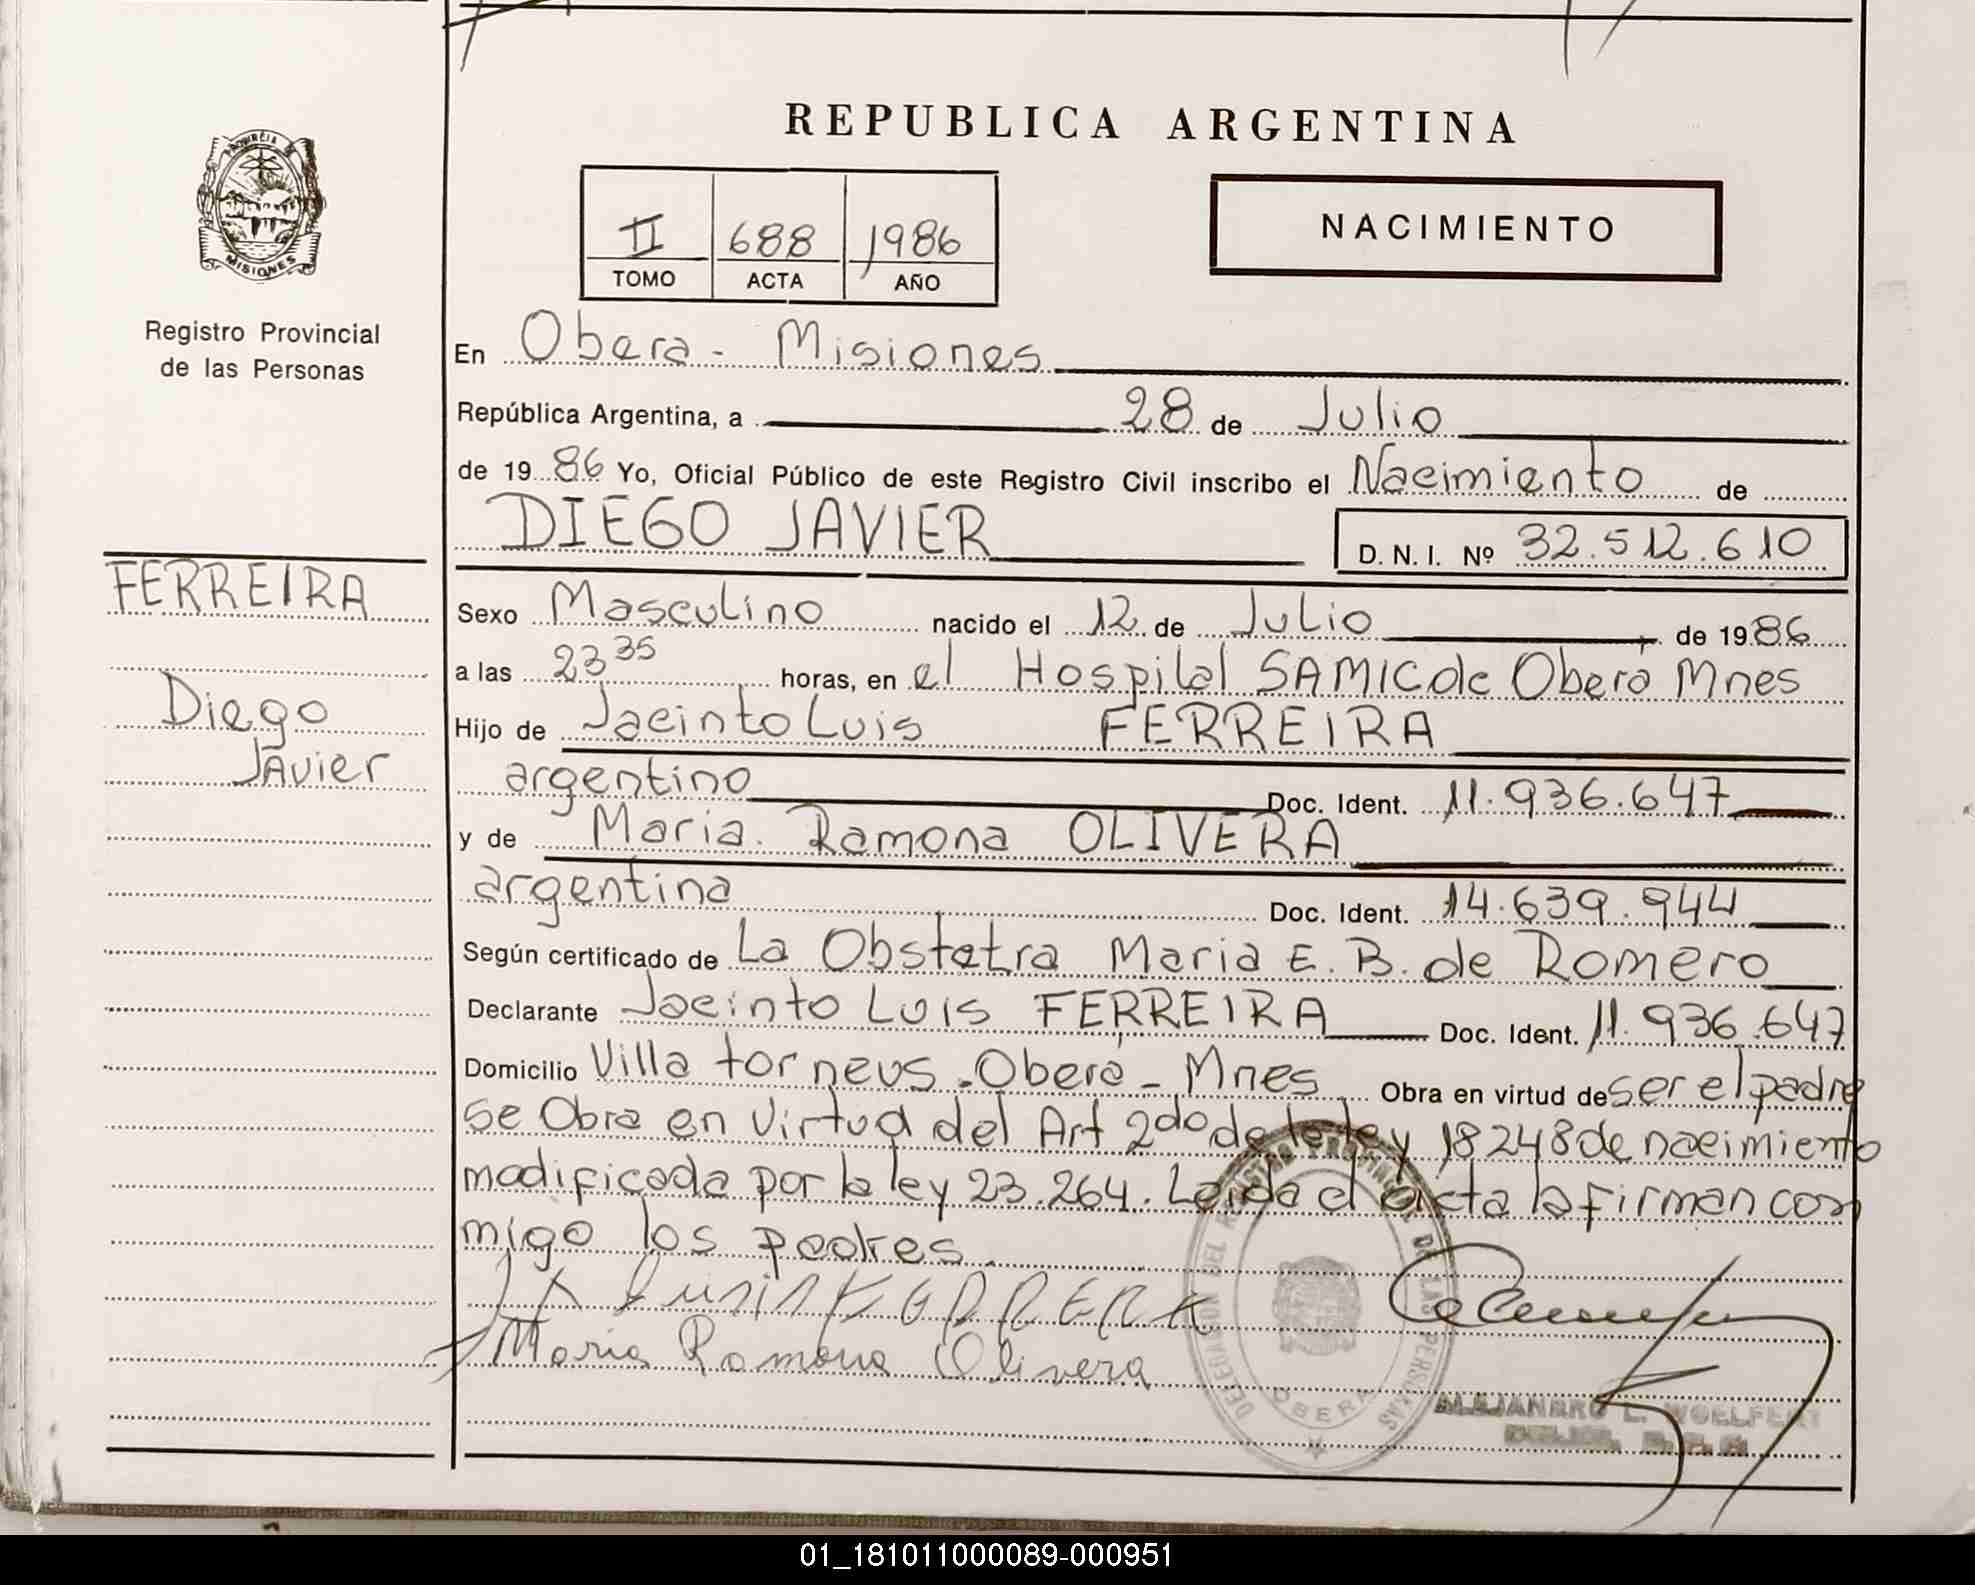 REPUBLICA ARGENTINA
PROVINCIA DE
MISIONES
II 688 1986
TOMO ACTA AÑO
NACIMIENTO
Registro Provincial
de las Personas
En Obera - Misiones
República Argentina, a 28 de Julio
de 1986 Yo, Oficial Público de este Registro Civil inscribo el Nacimiento de
DIEGO JAVIER D.N.I. Nº 32.512.610
FERREIRA
Diego
Javier
Sexo Masculino nacido el 12 de Julio de 1986
a las 23 35 horas, en el Hospital SAMIC de Oberá Mnes
Hijo de Jacinto Luis FERREIRA
argentino Doc. Ident. 11.936.647
y de Maria Ramona OLIVERA
argentina Doc. Ident. 14.639.944
Según certificado de La Obstetra Maria E. B. de Romero
Declarante Jacinto Luis FERREIRA Doc. Ident. 11.936.647
Domicilio Villa torneus - Oberá - Mnes Obra en virtud de ser el padre
se Obra en Virtud del Art 2do de la ley 18248 de nacimiento
modificada por la ley 23.264. Leida el acta la firman con
migo los padres.
Maria Ramona Olivera
DELEGACION DEL REGISTRO PROVINCIAL DE LAS PERSONAS
OBERA
ALEJANDRO L. WOELFERT
01_181011000089-000951